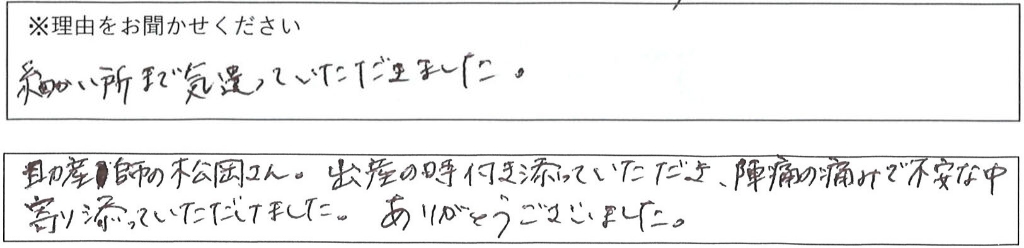 ※理由をお聞かせください
細かい所まで気遣っていただきました。
助産師の松岡さん。出産の時付き添っていただき、陣痛の痛みで不安な中
寄り添っていただけました。ありがとうございました。